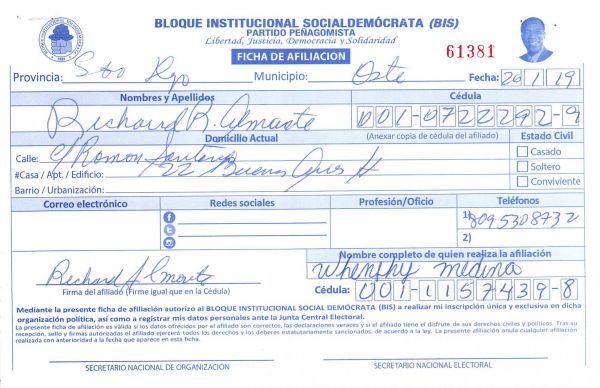 BLOQUE INSTITUCIONAL SOCIALDEMÓCRATA (BIS)
PARTIDO PEÑAGOMISTA
Libertad, Justicia, Democracia y Solidaridad
FICHA DE AFILIACION
61381
Provincia: Sto Dgo Municipio: Oste Fecha: 20/1/19
Nombres y Apellidos
Cédula
Richard R. Almonte
001-0722292-9
Domicilio Actual
(Anexar copia de cédula del afiliado)
Estado Civil
Calle: C/ Ramon Santana
#Casa / Apt. / Edificio: 22 Buenos Aires H
Barrio / Urbanización:
Casado
Soltero
Conviviente
Correo electrónico
Redes sociales
Profesión/Oficio
Teléfonos
1) 8095308732
2)
Richard Almonte
Firma del afiliado (Firme igual que en la Cédula)
Nombre completo de quien realiza la afiliación
Whenshy medina
Cédula: 001-1157439-8
Mediante la presente ficha de afiliación autorizo al BLOQUE INSTITUCIONAL SOCIAL DEMÓCRATA (BIS) a realizar mi inscripción única y exclusiva en dicha
organización política, así como a registrar mis datos personales ante la Junta Central Electoral.
La presente ficha de afiliación es válida si los datos ofrecidos por el afiliado son correctos, las declaraciones veraces y si el afiliado tiene el disfrute de sus derechos civiles y políticos. Tras su
recepción, sello y firmas autorizadas el afiliado ejercerá todos los derechos y los deberes estatutariamente sancionados, de acuerdo a la ley. La presente afiliación anula cualquier afiliación
realizada con anterioridad a la fecha que aparece en esta ficha.
SECRETARIO NACIONAL DE ORGANIZACIÓN
SECRETARIO NACIONAL ELECTORAL